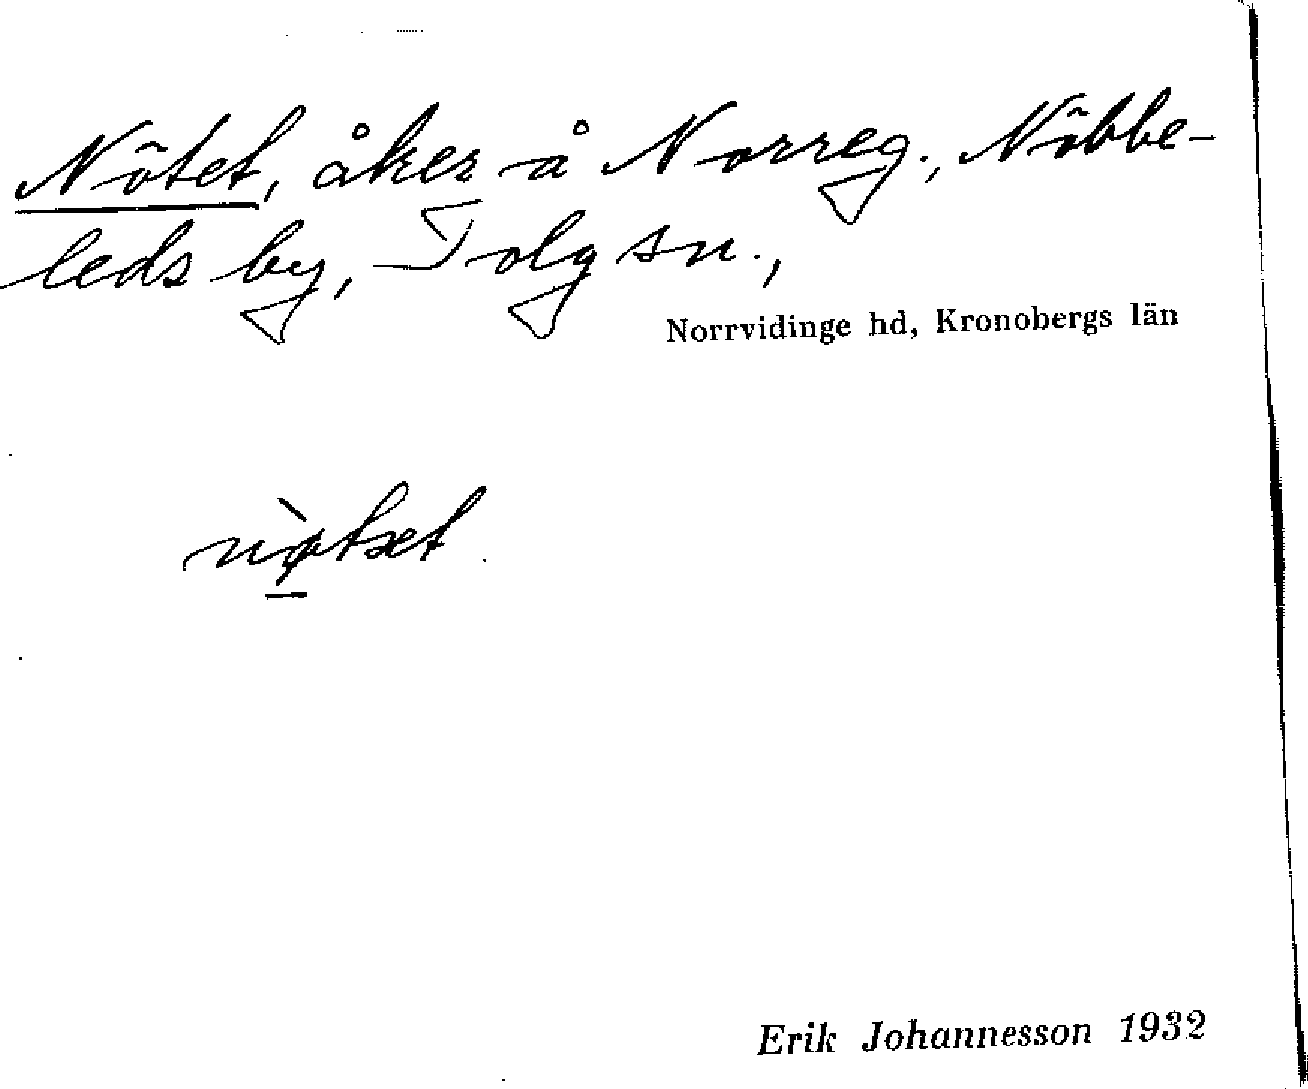 Nötet, åker å Norreg., Nöbbe-
leds by, Tolg sn.,
Norrvidinge hd, Kronobergs län
nø̀tæt
Erik Johannesson 1932